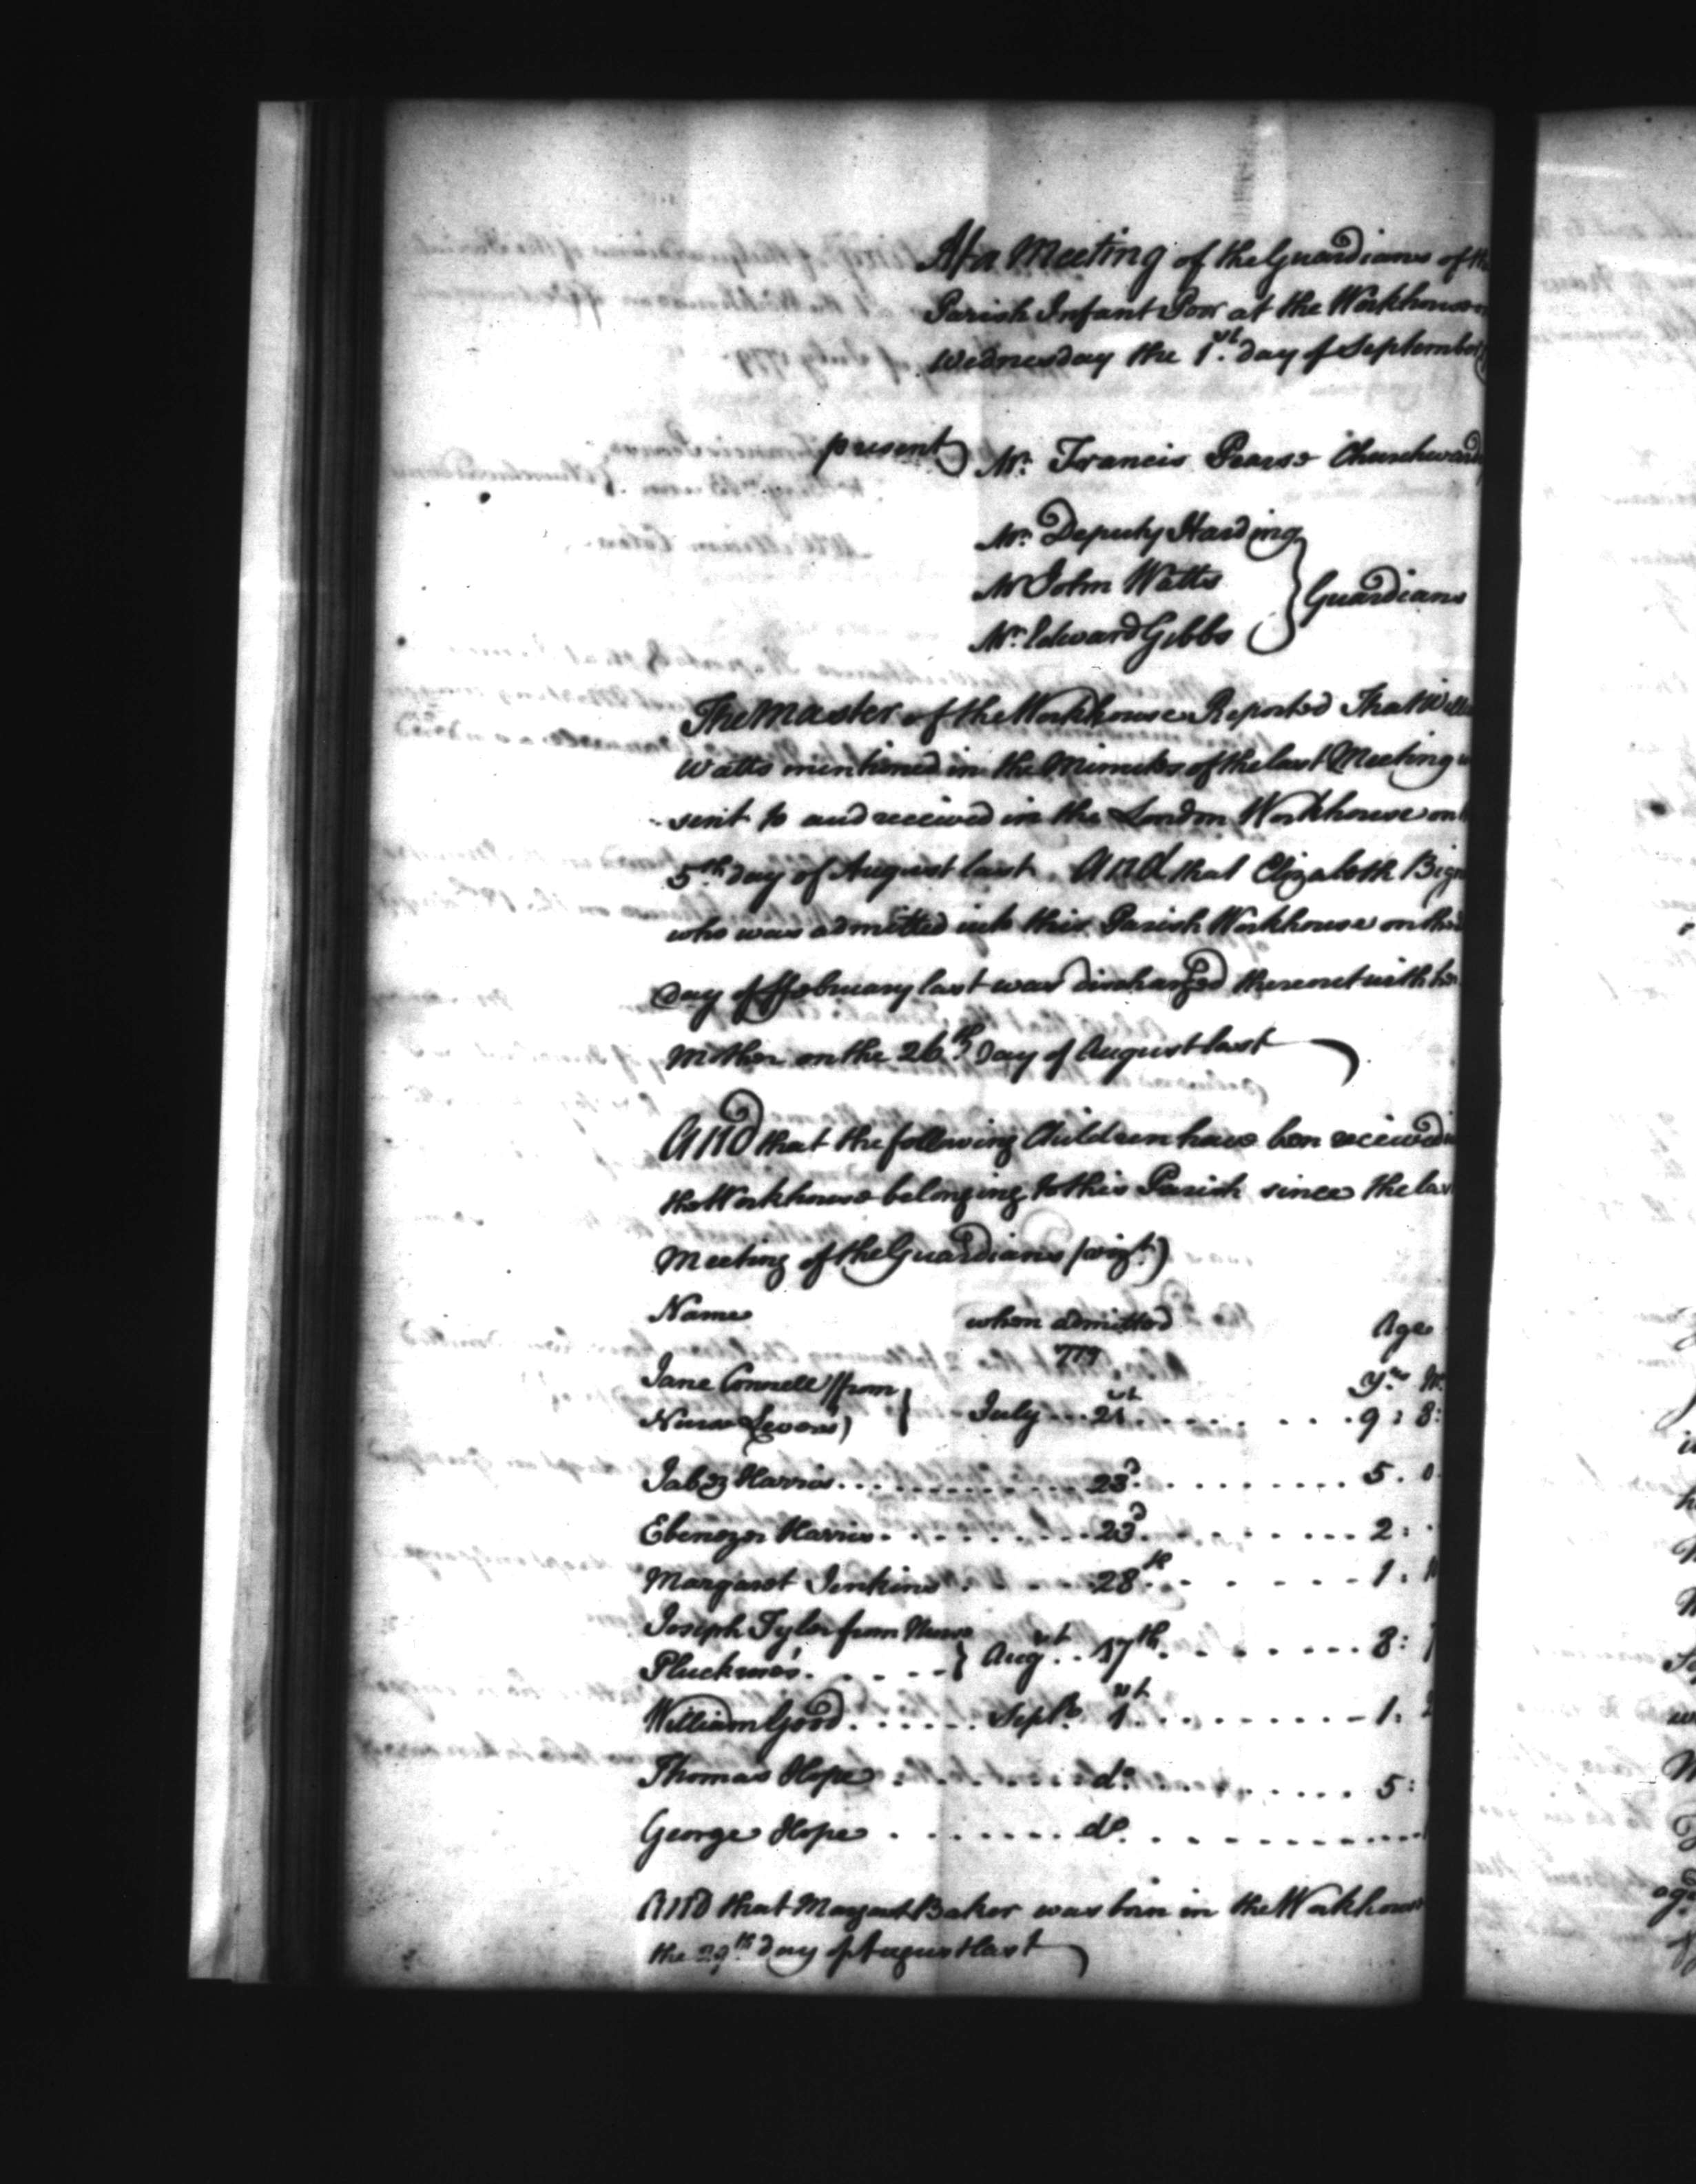 At a Meeting of the Guardians of the
Parish Infant Poor at the Workhouse
Wednesday the 1st. day of September
present Mr. Francis Pearse Churchward
Mr. Deputy Harding
Mr John Watts
Mr. Edward Gibbs
Guardians
The Master of the Workhouse Reported That Will
Watts mentioned in the Minutes of the last Meeting
sent to and received in the London Workhouse on
5th. day of August last. And that Elizabeth Big
who was admitted into this Parish Workhouse on the
day of ffebruary last was discharged thereout with
Mother on the 26th. day of August last
And that the following Children have been received
the Workhouse belonging to this Parish since the la
Meeting of the Guardians (vizt.)
Name when admitted Age
1779
Jane Connell (from
Nurse ) July 21st. 9 : 8 :
Yrs. M.
Jabez Harris 23d. 5 . 0
Ebenezer Harris 23d. 2 :
Margaret Jenkins 28th. 1 .
Joseph Tyler from Nurse
Augst. 17th. 8 :
William Good Septr. 1st. 1 .
Thomas Hope do. 5 :
George Hope do.
And that Margaret Baker was born in the Workhouse
the 29th. day of August last